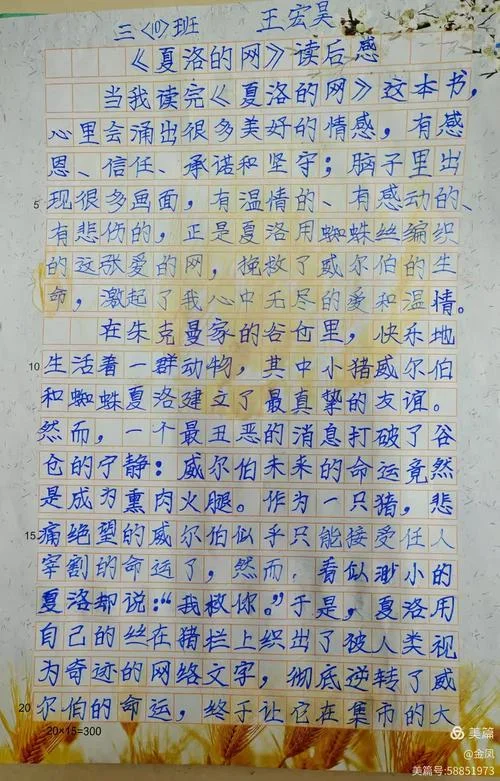 三〈10〉班 王宏昊
《夏洛的网》读后感
当我读完《夏洛的网》这本书,
心里会涌出很多美好的情感，有感
恩、信任、承诺和坚守；脑子里出
5 现很多画面，有温情的、有感动的、
有悲伤的，正是夏洛用蜘蛛丝编织
的这张爱的网，挽救了威尔伯的生
命，激起了我心中无尽的爱和温情。
在朱克曼家的谷仓里，快乐地
10 生活着一群动物，其中小猪威尔伯
和蜘蛛夏洛建立了最真挚的友谊。
然而，一个最丑恶的消息打破了谷
仓的宁静：威尔伯未来的命运竟然
是成为熏肉火腿。作为一只猪，悲
15 痛绝望的威尔伯似乎只能接受任人
宰割的命运了，然而，看似渺小的
夏洛却说：“我救你。”于是，夏洛用
自己的丝在猪栏上织出了被人类视
为奇迹的网络文字，彻底逆转了威
20 尔伯的命运，终于让它在集市的大
20×15=300
美篇
@金凤
美篇号:58851973